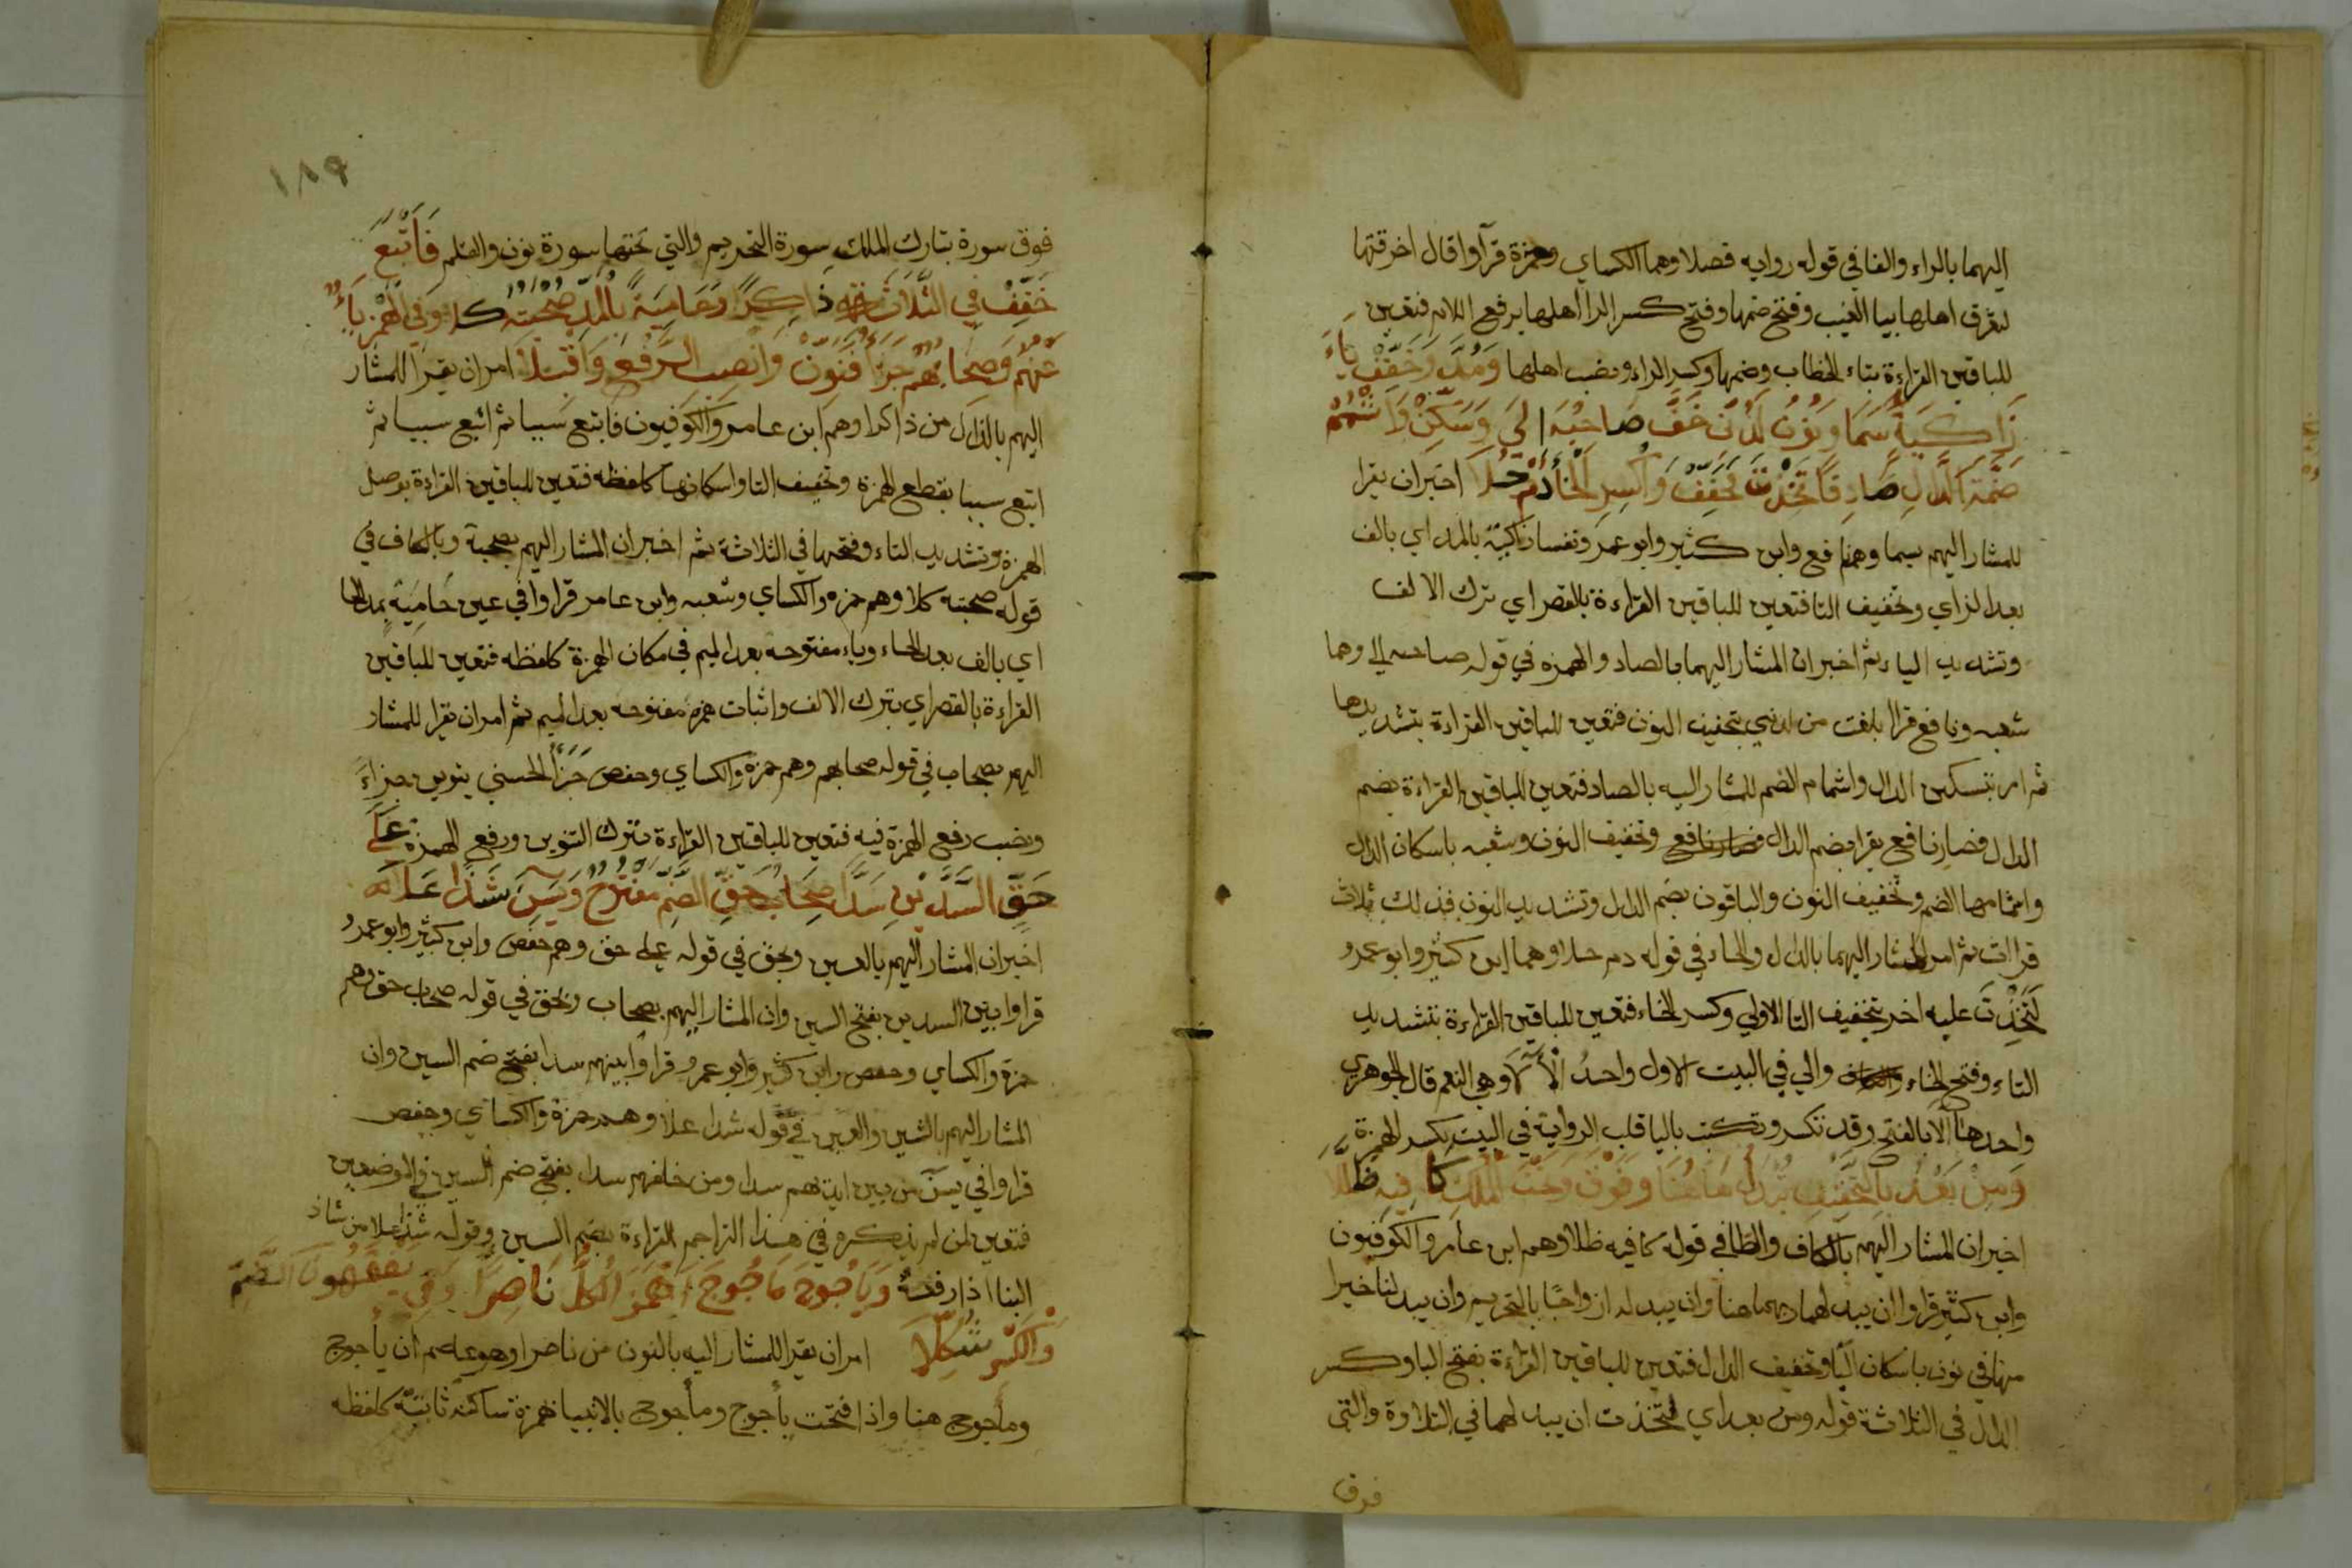 اليهما بالراء والفا في قوله روايه فصلا وهما الكساي وحمزة قرآ واقال اخرقتها
ليغرق اهلها بيا الغيب وفتح ضمها وفتح كسر الرا اهلها برفع اللام فتعين
للباقين القراءة بتاء الخطاب وضمها وكسر الراء ونصب اهلها وَمُدَّ وَخَفِّفْ يَاءَ
زَاكِيَةً سَمَا وَنُونُ لَدُنِّي خَفَّ صَاحِبُهُ اِلَي وَسَكِّنْ وَاَشْمِمْ
ضَمَّةَ الدَّالِ صَادِقًا تَخِذْتَ فَخَفِّفْ وَاكْسِرِ الْخَاءَ دُمْ حُلَا اخبران يقرا
للمشار اليهم بسما وهم نافع وابن كثير وابو عمرو نفسا زاكية بالمد اي بالف
بعد الزاي وتخفيف اليا فتعين للباقين القراءة بالقصر اي بترك الالف
وتشديد الياء ثم اخبر ان المشار اليهما بالصاد والهمزه في قوله صاحبه الى وهما
شعبه ونافع قرا بلغت من لدني بتخفيف النون فتعين للباقين القراءة بتشديدها
ثم امر بتسكين الدال واشمام الضم للمشار اليه بالصاد فتعين للباقين القراءة بضم
الدال فصار نافع يقرا بضم الدال فصار نافع وتخفيف النون وشعبه باسكان الدال
واشمامها الضم وتخفيف النون والباقون بضم الدال وتشديد النون فذلك ثلاث
قراات ثم امر للمشار اليهما بالدال والحاء في قوله دم حلا وهما ابن كثير وابو عمرو
لَتَخِذْتَ عليه اجر بتخفيف التا الاولي وكسر الخاء فتعين للباقين القراءة بتشديد
التاء وفتح الخاء والي في البيت الاول واحدُ الْآلَا وهي النعم قال الجوهري
واحدها الَا بالفتح وقد تكسر وتكتب باليا قلب الرواية في البيت بكسر الهمزة
وَمِنْ بَعْدُ بِالتَّخْفِيفِ يُبْدِلَ هَاهُنَا وَفَوْقَ وَتَحْتَ الْمُلْكِ كَافِيهِ ظَلَّلَا
اخبر ان المشار اليهم بالكاف والظا في قوله كافيه ظللا وهم ابن عامر والكوفيون
وابن كثير قراوا ان يبدلهما ربهما هنا وان يبدله ازواجًا بالتحريم وان يبدلنا خيرا
منها في نون باسكان البا وتخفيف الدال فتعين للباقين القراءة بفتح البا وكسر
الدال في الثلاثة قوله ومن بعد اي لتخذت ان يبدلهما في التلاوة والتي
فوق
١٨٩
فوق سورة تبارك الملك سورة التحريم والتي تحتها سورة نون والقلم فَاَتْبَعَ
خَفِّفْ فِي الثَّلَاثَةِ ذَاكِرًا وَحَامِيَةً بِالْمَدِّ صُحْبَتُهُ كلا وَفِي الْهَمْزِ يَاءٌ
عَنْهُمُ وَصِحَابُهُمْ جَزَاءُ فَنَوِّنْ وَانْصِبِ الرَّفْعَ وَاقْبَلَا امر ان يقرا للمشار
اليهم بالذال من ذاكرا وهم ابن عامر والكوفيون فاتبع سببا ثم اتبع سببا ثم
اتبع سببا بقطع الهمزة وتخفيف التا واسكانها كلفظه فتعين للباقين القراءة بوصل
الهمزة وتشديد التاء وفتحها في الثلاثة ثم اخبر ان المشار اليهم بصحبة وبالكاف في
قوله صحبته كلا وهم حمزه والكساي وشعبه وابن عامر قراوا في عين حَامِيَة بمد الحا
اي بالف بعد الحاء وياء مفتوحه بعد الميم في مكان الهمزة كلفظه فتعين للباقين
القراءة بالقصر اي بترك الالف واثبات همزه مفتوحه بعد الميم ثم امر ان يقرا للمشار
اليهم بصحاب في قوله صحابهم وهم حمزة والكساي وحفص جَزَاءً الحسني بتنوين جزاءَ
ونصب رفع الهمزة فيه فتعين للباقين القراءة بترك التنوين ورفع الهمزة عَلَى
حَقٍّ السَّدَّيْنِ سَدًّا صِحَابُ حَقٍّ الضَّمُّ مَفْتُوحٌ وَيٰسٓ شَدًّا عَلَا
اخبر ان المشار اليهم بالعين وبحق في قوله على حق وهم حفص وابن كثير وابو عمرو
قراوا بين السدين بفتح السين وان المشار اليهم بصحاب وبحق في قوله صحاب حق وهم
حمزة والكساي وحفص وابن كثير وابو عمرو قراوا بينهم سدا بفتح ضم السين وان
المشار اليهم بالشين والعين في قوله شدا علا وهم حمزة والكساي وحفص
قراوا في يسٓ من بين ايديهم سدا ومن خلفهم سدا بفتح ضم السين في الموضعين
فتعين لمن لم يذكره في هذا التراجم القراءة بضم السين وقوله شدا علا من شاد
البنا اذا رفعه وَيَاجُوجَ مَاجُوجَ اهْمِزِ الْكُلَّ نَاصِرًا وَفِي يَفْقَهُونَ الضَّمُّ
وَالْكَسْرُ شُكِّلَا امر ان يقرا للمشار اليه بالنون من ناصرا وهو عاصم ان يأجوج
ومأجوج هنا واذا فتحت يأجوج ومأجوج بالانبيا بهمزة ساكنه ثابتة كلفظه